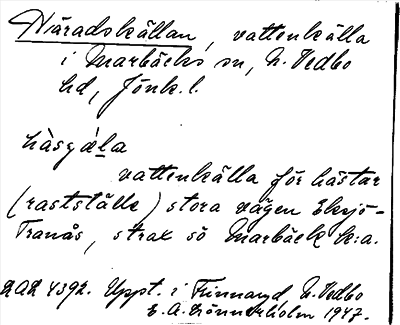 Häradskällan, vattenkälla
i Marbäcks sn, N. Vedbo
hd, Jönk. l.
hàsɡǽla
vattenkälla för hästar
(rastställe) stora vägen Eksjö-
Tranås, strax sö Marbäck k:a.
4392. Uppt. i Finnaryd, N. Vedbo
E. A. Lönnerholm 1947.